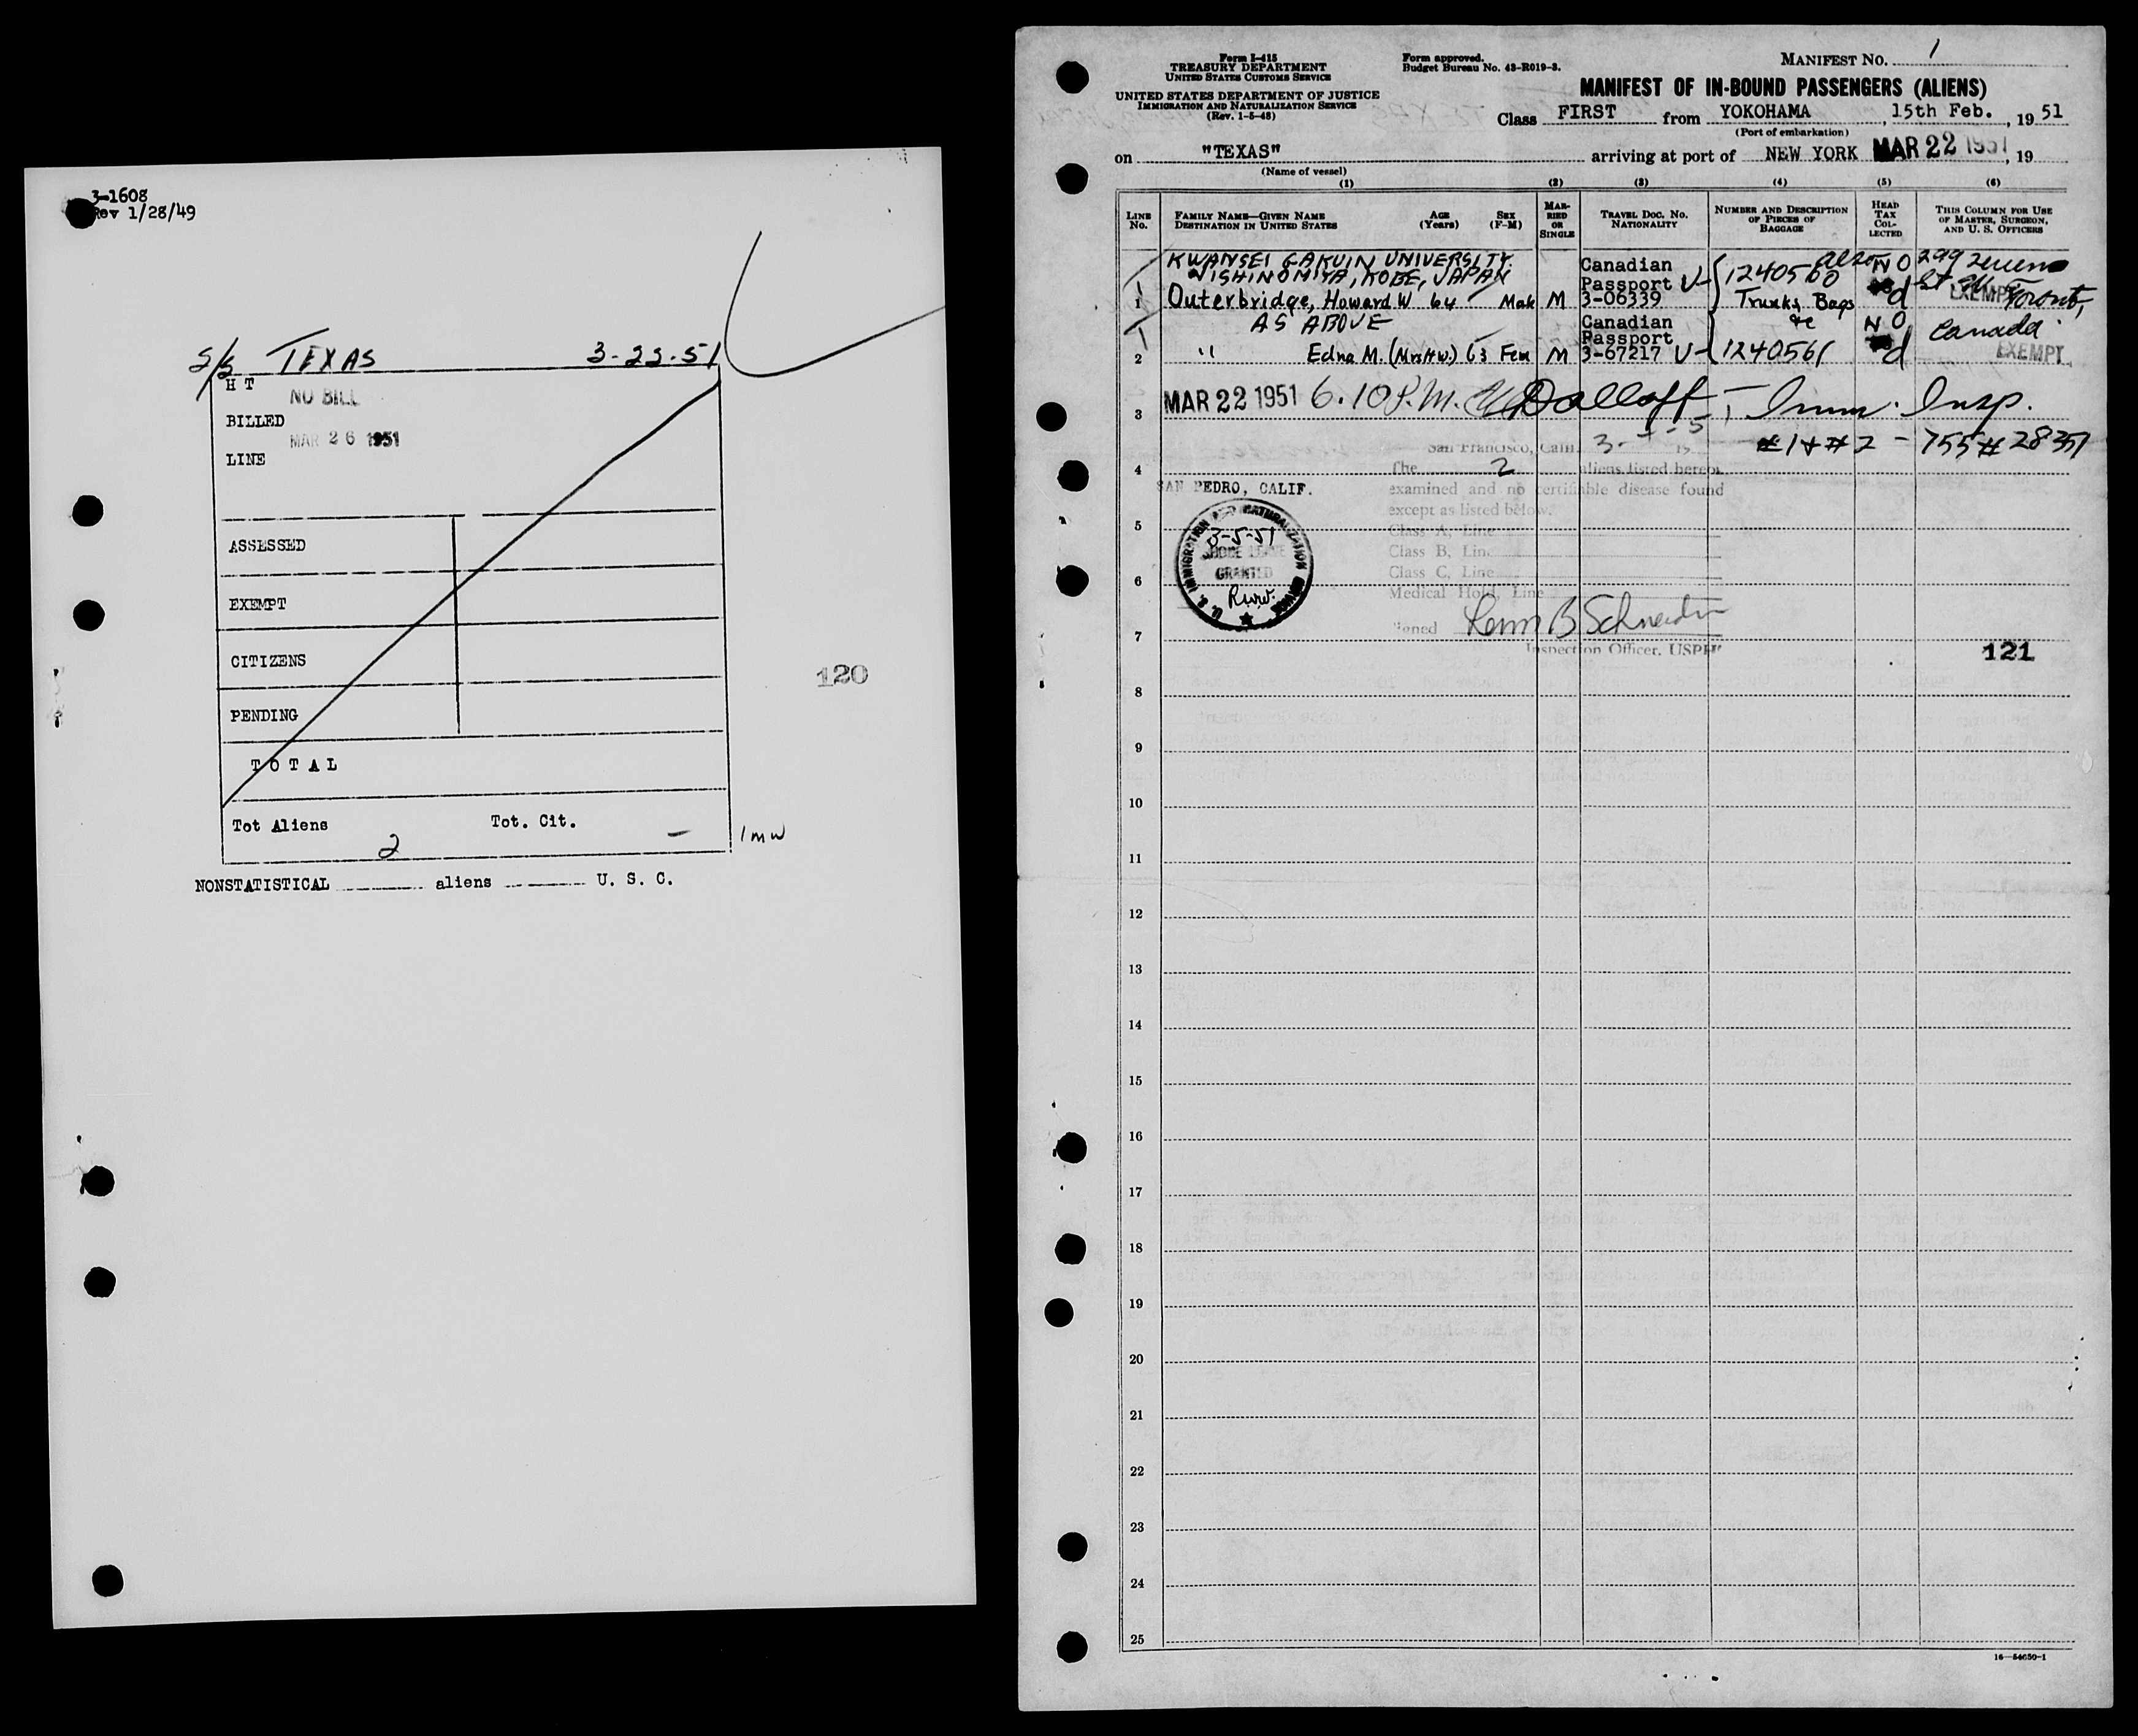 3-1608
Rev 1/28/49
S/S TEXAS 3-22-51
H T
NO BILL
BILLED
MAR 26 1951
LINE
ASSESSED
EXEMPT
CITIZENS
120
PENDING
TOTAL
Tot Aliens Tot. Cit.
2 -
1mw
NONSTATISTICAL aliens U. S. C.
Form I-415
TREASURY DEPARTMENT
UNITED STATES CUSTOMS SERVICE
UNITED STATES DEPARTMENT OF JUSTICE
IMMIGRATION AND NATURALIZATION SERVICE
(Rev. 1-5-48)
Form approved.
Budget Bureau No. 43-R019-3.
MANIFEST No. 1
MANIFEST OF IN-BOUND PASSENGERS (ALIENS)
Class FIRST from YOKOHAMA, 15th Feb., 19 51
(Port of embarkation)
on "TEXAS" arriving at port of NEW YORK MAR 22 1951, 19
(Name of vessel)
(1) (2) (3) (4) (5) (6)
LINE No.
FAMILY NAME—GIVEN NAME
DESTINATION IN UNITED STATES
AGE (Years)
SEX (F-M)
MARRIED OR SINGLE
TRAVEL DOC. NO.
NATIONALITY
NUMBER AND DESCRIPTION OF PIECES OF BAGGAGE
HEAD TAX COLLECTED
THIS COLUMN FOR USE OF MASTER, SURGEON, AND U. S. OFFICERS
KWANSEI GAKUIN UNIVERSITY
NISHINOMIYA, KOBE, JAPAN
1 Outerbridge, Howard W 64 Male M
Canadian
Passport V
3-06339
1240560
Trunks, Bags
&c
also
NO
299
St
Toronto,
EXEMPT
AS ABOVE
2 " Edna M. (Mrs H.W.) 63 Fem M
Canadian
Passport
3-67217 V
1240561
NO
Canada
EXEMPT
3 MAR 22 1951 6.10 P.M. Dalloff - Imm. Insp.
#1 & #2 - 755 #
San Francisco, Calif.
4 The 2 aliens listed hereon
SAN PEDRO, CALIF.
examined and no certifiable disease found
except as listed below.
5 Class A, Line
Class B, Line
Class C, Line
6 Medical Hold, Line
U. S. IMMIGRATION AND NATURALIZATION SERVICE
3-5-51
SHORE LEAVE
GRANTED
Signed
7 Inspection Officer, USPHS
121
8
9
10
11
12
13
14
15
16
17
18
19
20
21
22
23
24
25
16—54650-1